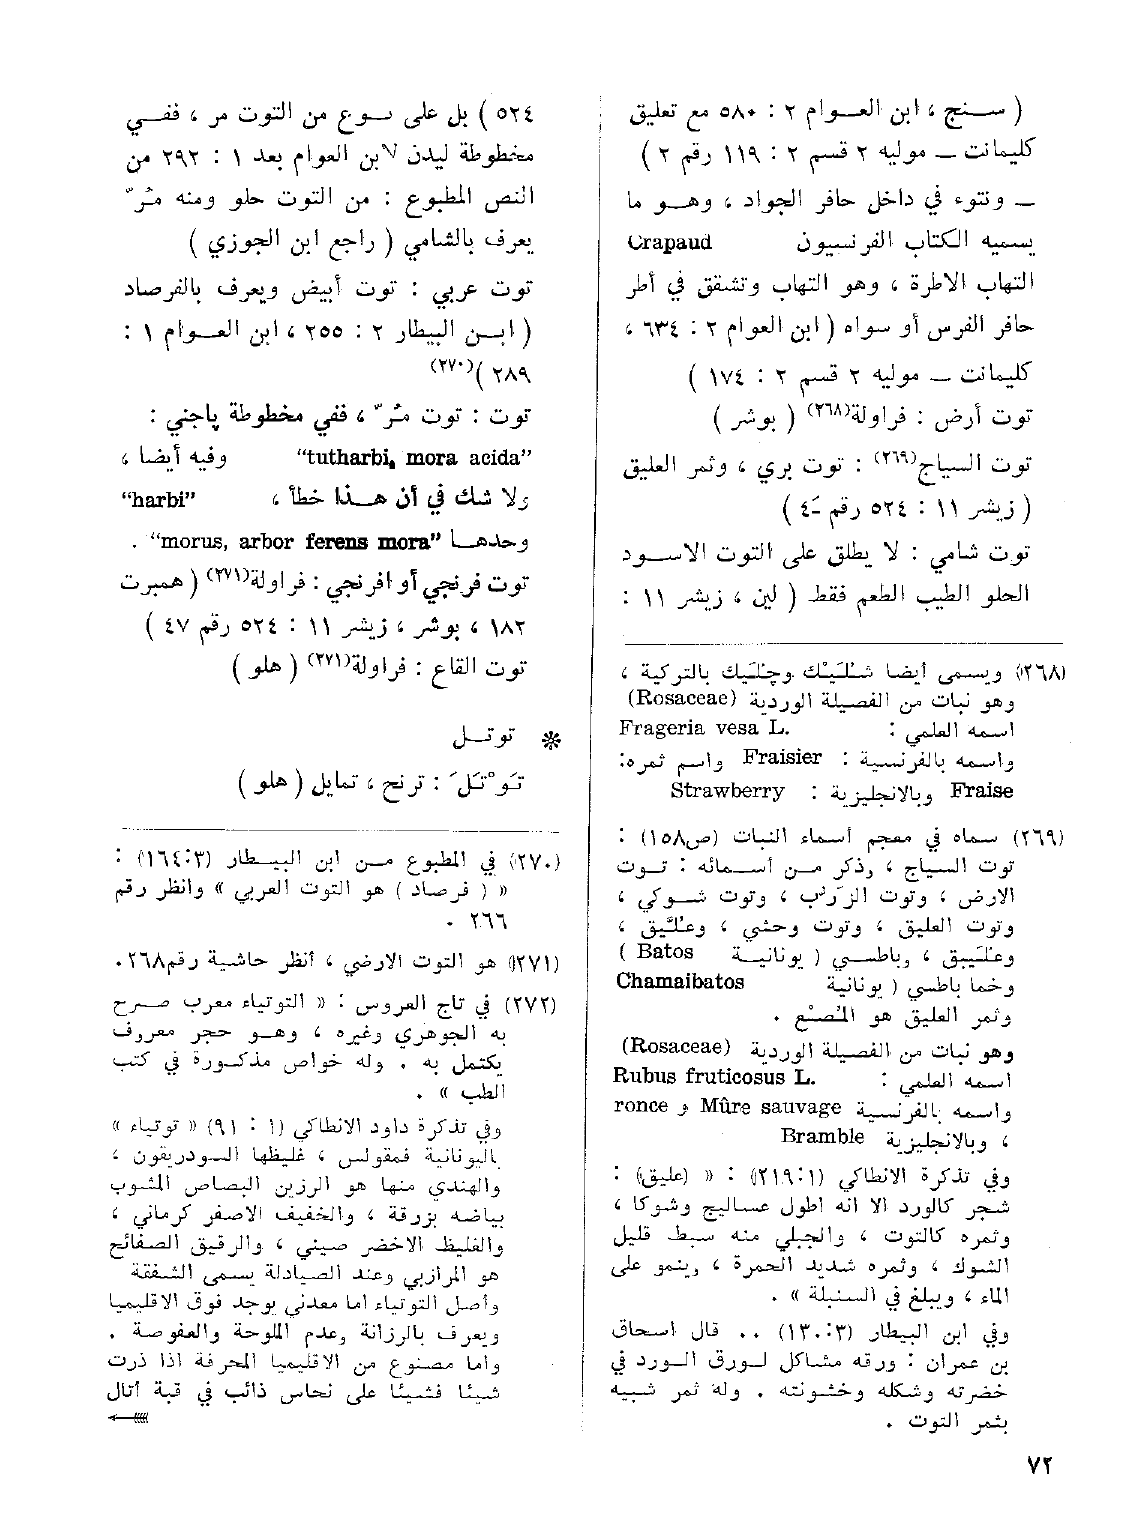 ( سنج ، ابن العوام ٢ : ٥٨٠ مع تعليق
كليمانت ــ موليه ٢ قسم ٢ : ١١٩ رقم ٢ )
ــ ونتوء في داخل حافر الجواد ، وهو ما
يسميه الكتاب الفرنسيون Crapaud
التهاب الاطرة ، وهو التهاب وتشقق في أطر
حافر الفرس أو سواه ( ابن العوام ٢ : ٦٣٤ ،
كليمانت ــ موليه ٢ قسم ٢ : ١٧٤ )
توت أرض : فراولة(٢٦٨) ( بوشر )
توت السياج(٢٦٩) : توت بري ، وثمر العليق
( زيشر ١١ : ٥٢٤ رقم ٤ـ )
توت شامي : لا يطلق على التوت الاسود
الحلو الطيب الطعم فقط ( لين ، زيشر ١١ :
(٢٦٨) ويسمى أيضا شُلَيْك وچِلَيك بالتركية ،
وهو نبات من الفصيلة الوردية (Rosaceae)
اسمه العلمي : Frageria vesa L.
واسمه بالفرنسية : Fraisier واسم ثمره:
Fraise وبالانجليزية : Strawberry
(٢٦٩) سماه في معجم أسماء النبات (ص١٥٨) :
توت السياج ، وذكر من أسمائه : توت
الارض ، وتوت الزَرَب ، وتوت شوكي ،
وتوت العليق ، وتوت وحشي ، وعُلَّيق ،
وعلّيق ، وباطسي ( يونانية Batos )
وخما باطسي ( يونانية Chamaibatos
وثمر العليق هو المُصَع .
وهو نبات من الفصيلة الوردية (Rosaceae)
اسمه العلمي : Rubus fruticosus L.
واسمه بالفرنسية Mûre sauvage و ronce
، وبالانجليزية Bramble
وفي تذكرة الانطاكي (١:٢١٩) : « (عليق) :
شجر كالورد الا انه اطول عساليج وشوكا ،
وثمره كالتوت ، والجبلي منه سبط قليل
الشوك ، وثمره شديد الحمرة ، وينمو على
الماء ، ويبلغ في السنبلة » .
وفي ابن البيطار (٣:١٣٠) .. قال اسحاق
بن عمران : ورقه مشاكل لورق الورد في
خضرته وشكله وخشونته . وله ثمر شبيه
بثمر التوت .
٥٢٤ ) بل على نوع من التوت مر ، ففي
مخطوطة ليدن لابن العوام بعد ١ : ٢٩٢ من
النص المطبوع : من التوت حلو ومنه مُرّ
يعرف بالشامي ( راجع ابن الجوزي )
توت عربي : توت أبيض ويعرف بالفرصاد
( ابن البيطار ٢ : ٢٥٥ ، ابن العوام ١ :
٢٨٩ )(٢٧٠)
توت : توت مُرّ ، ففي مخطوطة پاجني :
“tutharbi, mora acida” وفيه أيضا ،
ولا شك في أن هذا خطأ ، “harbi”
وحدها “morus, arbor ferens mora” .
توت فرنجي أو افرنجي : فراولة(٢٧١) ( همبرت
١٨٢ ، بوشر ، زيشر ١١ : ٥٢٤ رقم ٤٧ )
توت القاع : فراولة(٢٧١) ( هلو )
* توتل
تَوْتَلَ : ترنح ، تمايل ( هلو )
(٢٧٠) في المطبوع من ابن البيطار (٣:١٦٤) :
« ( فرصاد ) هو التوت العربي » وانظر رقم
٢٦٦ .
(٢٧١) هو التوت الارضي ، أنظر حاشية رقم٢٦٨ .
(٢٧٢) في تاج العروس : « التوتياء معرب صرح
به الجوهري وغيره ، وهو حجر معروف
يكتحل به . وله خواص مذكورة في كتب
الطب » .
وفي تذكرة داود الانطاكي (١ : ٩١) « توتياء »
باليونانية فمقولس ، غليظها السودريقون ،
والهندي منها هو الرزين البصاص المشوب
بياضه بزرقة ، والخفيف الاصفر كرماني ،
والغليظ الاخضر صيني ، والرقيق الصفائح
هو المرازبي وعند الصيادلة يسمى الشفقة
وأصل التوتياء اما معدني يوجد فوق الاقليميا
ويعرف بالرزانة وعدم الملوحة والعفوصة .
واما مصنوع من الاقليميا المحرفة اذا ذرت
شيئا فشيئا على نحاس ذائب في قبة أتال
٧٢